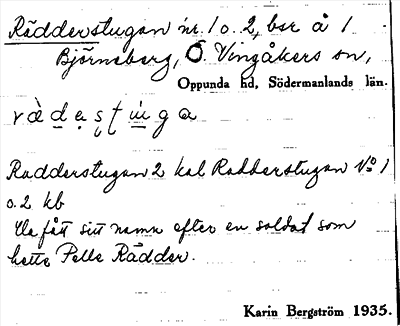 Rådderstugan nr. 1 o. 2, bsr å 1
Björnsberg, Ö. Vingåkers sn,
Oppunda hd, Södermanlands län.
Radderstugan 2 kal Radderstugan No 1
o. 2 kb
Ha fått sitt namn efter en soldat som
hette Pelle Rådder.
Karin Bergström 1935.